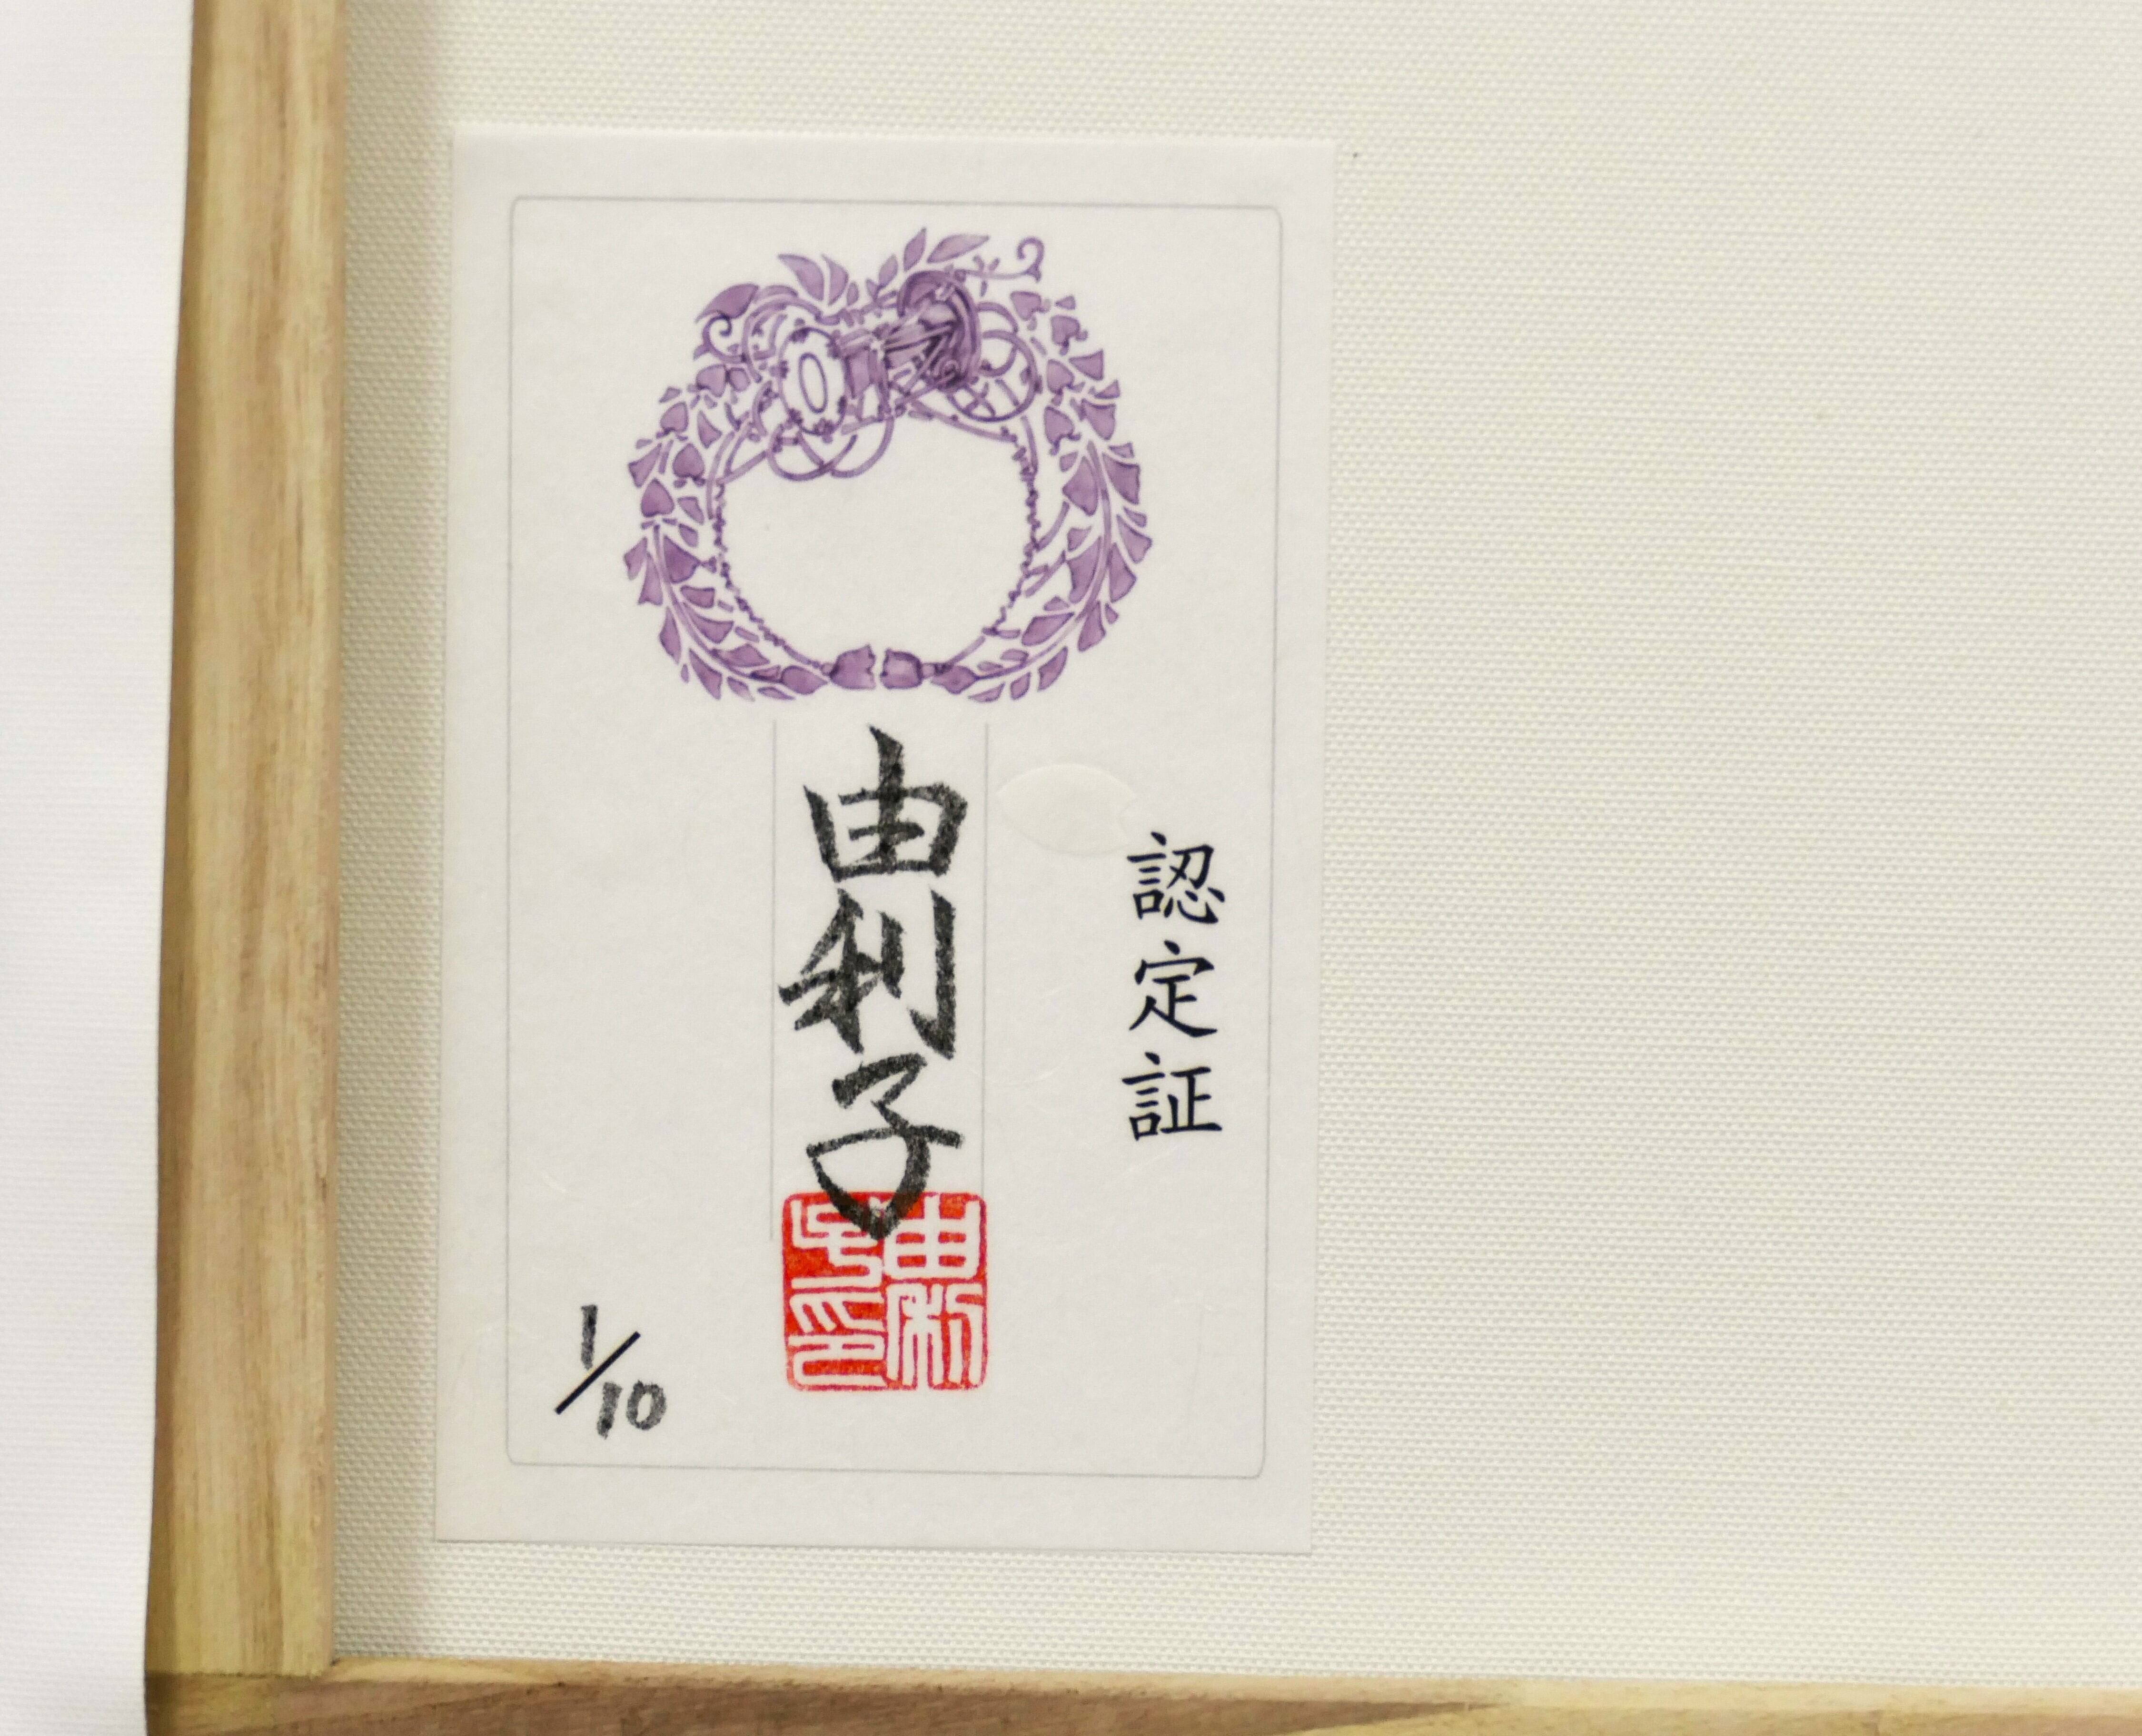 認定証
由利子
由利子印
1/10